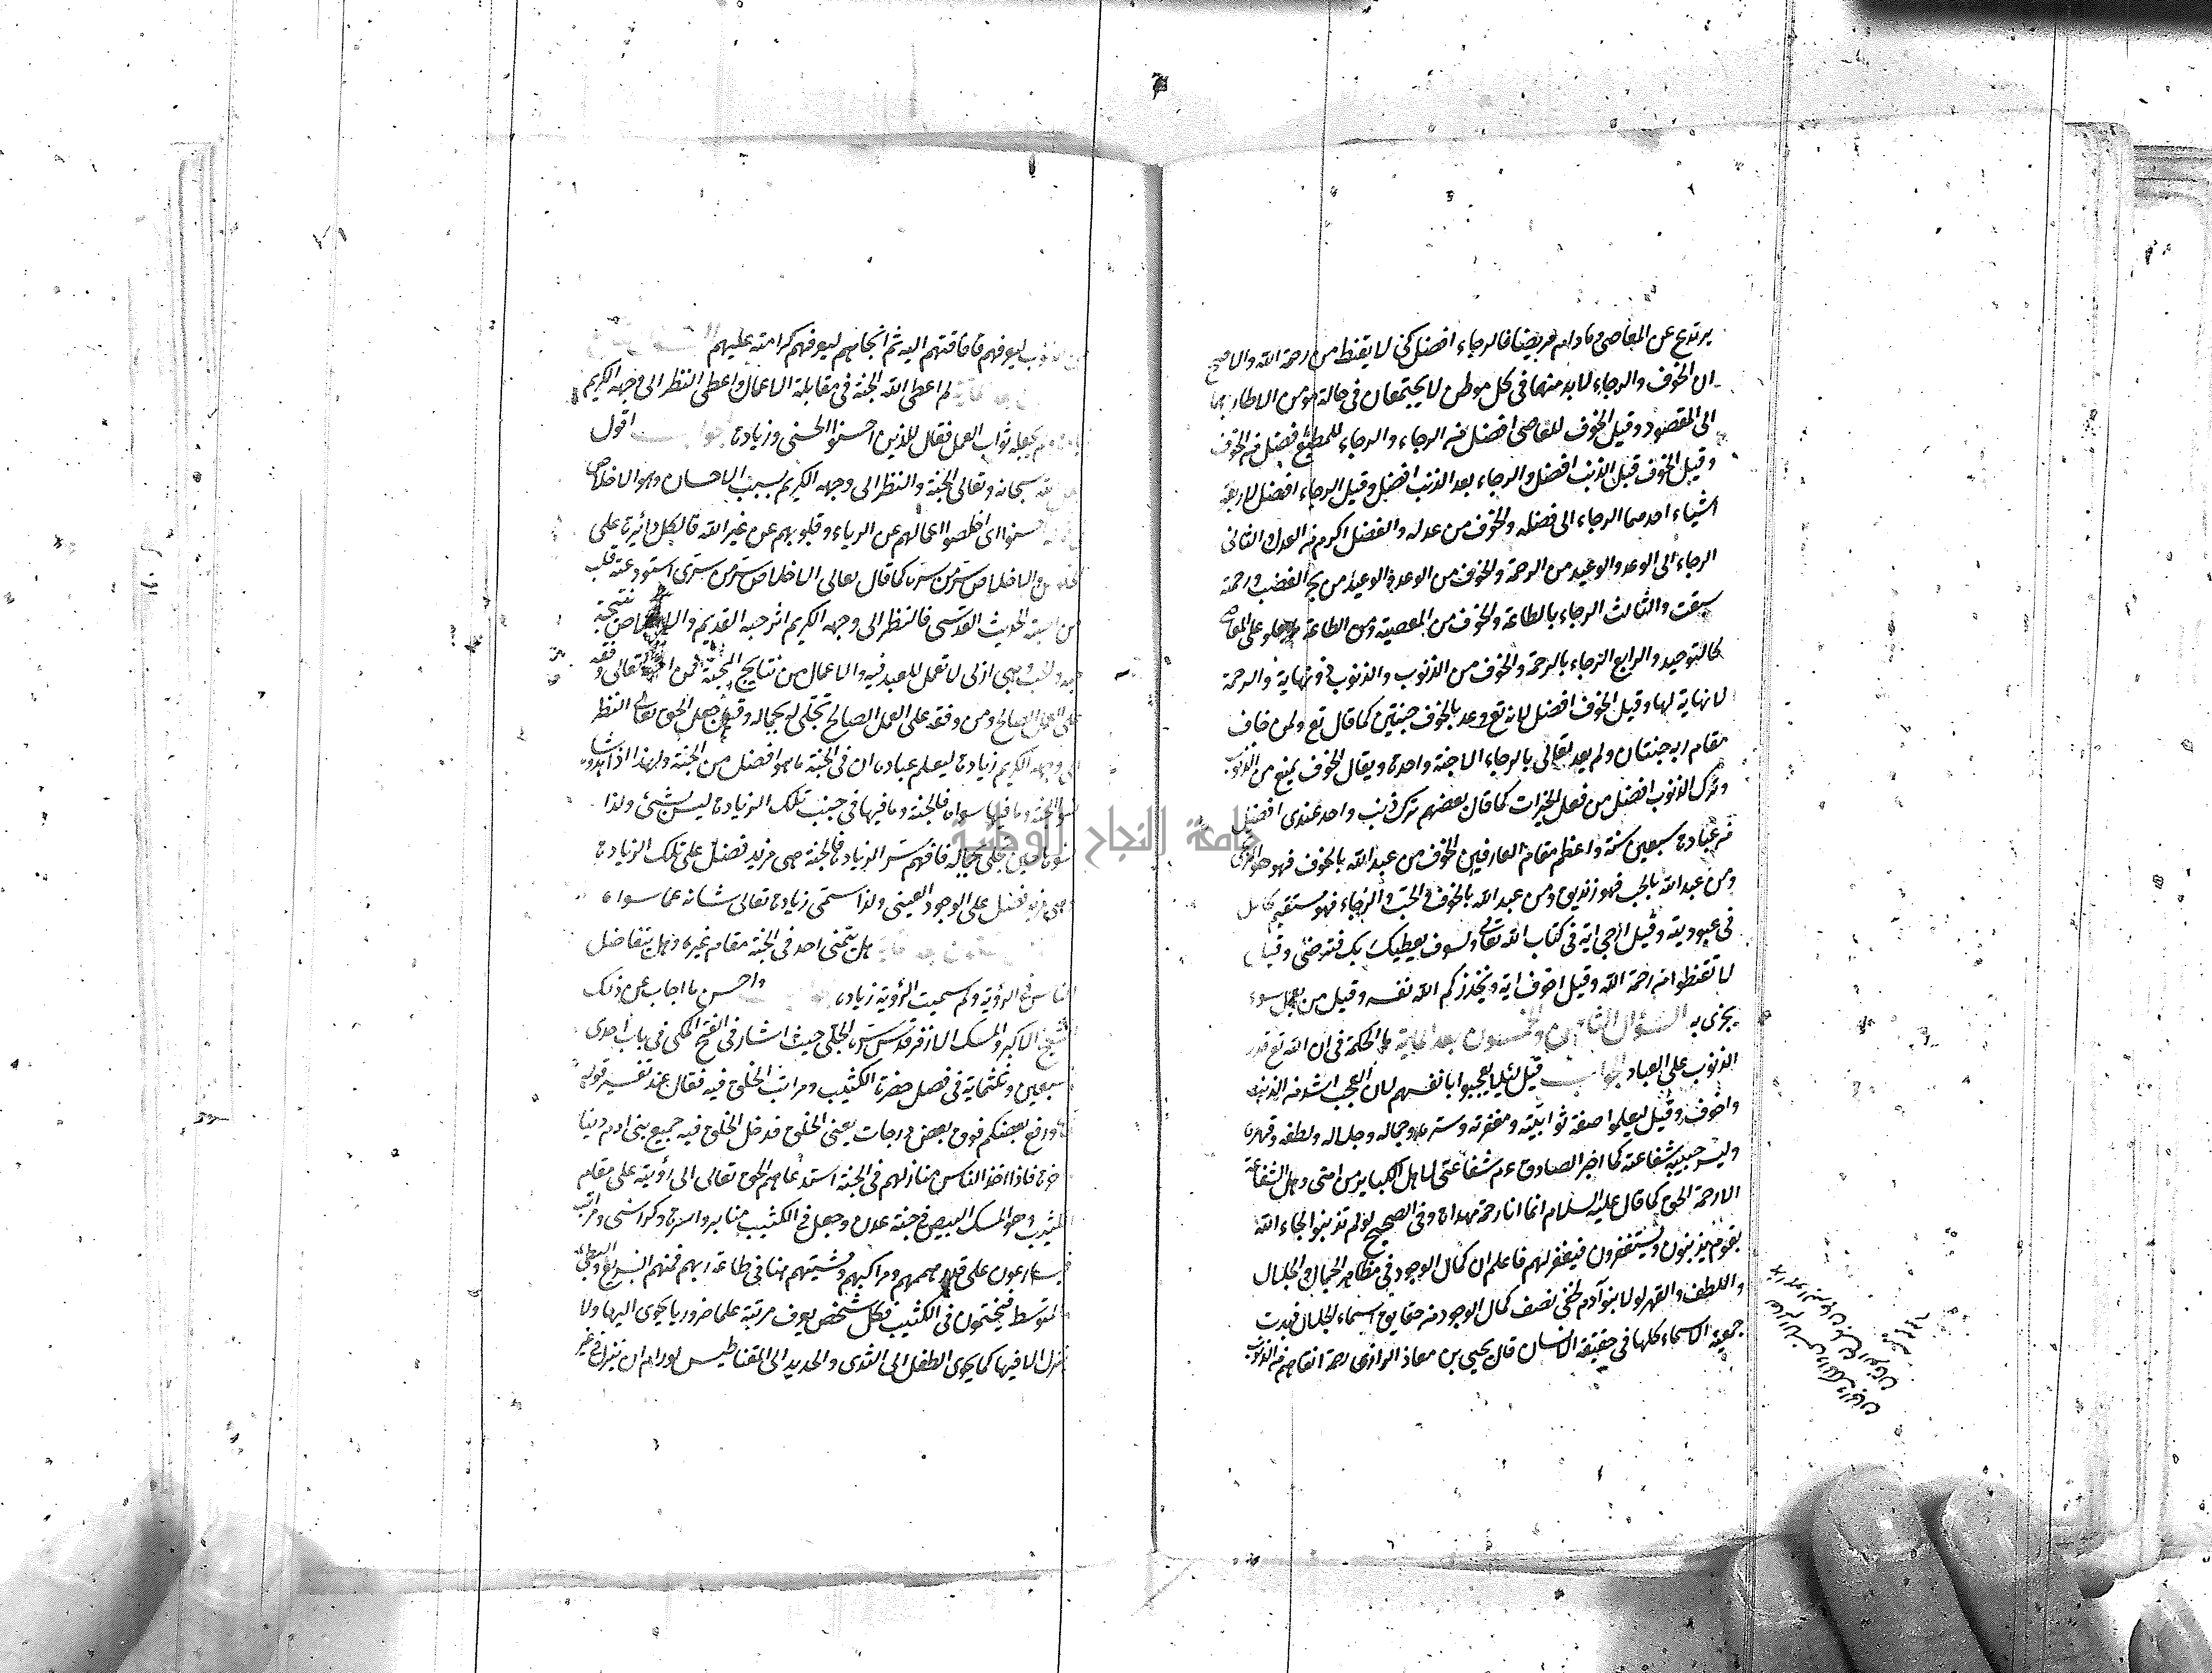 يرتدع عن المعاصى وما دام مريضا فالرجاء افضل كى لا يقنط من رحمة الله والاصح
ان الخوف والرجاء لابد منهما فى كل موطن لا يجتمعان فى حالة مؤمن الاطار بهما
الى المقصود وقيل الخوف للعاصى افضل من الرجاء والرجاء للمطيع افضل من الخوف
وقيل الخوف قبل الذنب افضل والرجاء بعد الذنب افضل وقيل الرجاء افضل لاربعة
اشياء احدهما الرجاء الى فضله والخوف من عدله والفضل اكرم من العدل الثانى
الرجاء الى الوعد والوعيد من الرحمة والخوف من الوعد والوعيد من الغضب ورحمة
سبقت والثالث الرجاء بالطاعة والخوف من المعصية ومن الطاعة على المعاصى
كالتوحيد والرابع الرجاء بالرحمة والخوف من الذنوب والذنوب نهاية والرحمة
لا نهاية لها وقيل الخوف افضل لانه تع وعد بالخوف جنتين كما قال تع ولمن خاف
مقام ربه جنتان ولم يعد تعالى بالرجاء الا جنة واحدة ويقال الخوف يمنع من الذنوب
وترك الذنوب افضل من فعل الخيرات كما قال بعضهم ترك ذنب واحد عندى افضل
من عبادة سبعين سنة واعظم مقام العارفين الخوف من عبد الله بالخوف فهو حرورى
ومن عبد الله بالحب فهو زنديق ومن عبد الله بالخوف والحب والرجاء فهو مستقيم كامل
فى عبوديته وقيل ارجى اية فى كتاب الله تعالى ولسوف يعطيك ربك فترضى وقيل
لا تقنطوا من رحمة الله وقيل اخوف اية ويحذركم الله نفسه وقيل من يعمل سوء
يجزى به السؤال الثانى والخمسون بعد الماية ما الحكمة فى ان الله تع قدر
الذنوب على العباد الجواب قيل لئلا يعجبوا بانفسهم لان العجب اشد من الذنوب
واخوف وقيل ليعلموا صفة توابيته ومغفرته وستره وجماله وجلاله ولطفه وقهره
وليس حبيبه شفاعته كما اخبر الصادق عم شفاعتى لاهل الكباير من امتى وهل الشفاعة
الا رحمة الحق كما قال عليه السلام انما انا رحمة مهداة وفى الصحيح لو لم تذنبوا لجاء الله
بقوم يذنبون ويستغفرون فيغفر لهم فاعلم ان كمال الوجود فى مظاهر الجمال والجلال
واللطف والقهر لولا بنو آدم لخفى نصف كمال الوجود من حقايق اسماء الجلال فبدت
جمعية الاسماء كلها فى حقيقة الانسان قال يحيى بن معاذ الرازى رحمه القاهم فى الذنوب
الذنوب ليعرفهم فاقتهم اليه ثم انجاهم ليعرفهم كرامته عليهم
لم اعطى الله الجنة فى مقابلة الاعمال واعطى النظر الى وجهه الكريم
ولم يجعله ثواب العمل فقال للذين احسنوا الحسنى وزيادة الجواب اقول
الله سبحانه وتعالى الجنة والنظر الى وجهه الكريم بسبب الاحسان وهو الاخلاص
احسنوا اى اخلصوا اعمالهم عن الرياء وقلوبهم عن غير الله فالكل دائرة على
الاخلاص والاخلاص سر من سره كما قال تعالى الاخلاص سر من سرى استودعته قلب
من احببته الحديث القدسى فالنظر الى وجهه الكريم اثر حبه القديم والاخلاص نتيجة
حبه والحب وهبى ازلى لا تعمل للعبد فيه والاعمال من نتايج المحبة فمن احبه تعالى وفقه
على العمل الصالح ومن وفقه على العمل الصالح تجلى له بجماله وقيل جعل الحق تعالى النظر
الى وجهه الكريم زيادة ليعلم عباده ان فى الجنة ما هو افضل من الجنة ولهذا اذا شاهدوه
نسوا الجنة وما فيها سواه فالجنة وما فيها فى جنب تلك الزيادة ليس بشئ ولذا
نسوها حين تجلى بجماله فافهم سر الزيادة فالجنة هى مزيد فضل على تلك الزيادة
وهى مزيد فضل على الوجود العينى ولذا ستمى زيادة تعالى شانه عما سواه
هل يتمنى احد فى الجنة مقام غيره وهل يتفاضل
الناس فى الرؤية ولم سميت الرؤية زيادة واحسن ما اجاب عن ذلك
الشيخ الاكبر والمسك الاذفر قدس سره الجلى حيث اشار فى الفتح المكى فى باب احدى
سبعين وثلثماية فى فصل حضرة الكثيب ومراتب الخلق فيه فقال عند تفسير قوله
ورفع بعضكم فوق بعض درجات يعنى الخلق فدخل الخلق فيه جميع بنى ادم دنيا
واخرة فاذا اخذ الناس منازلهم فى الجنة استدعاهم الحق تعالى الى رؤيته على مقام
الكثيب وهو المسك الابيض فى جنة عدن وجعل فى الكثيب منابر واسرة وكراسى ومراتب
فيسارعون على قدر هممهم ومراكبهم ومشيتهم هنا فى طاعة ربهم فمنهم السريع والبطئ
والمتوسط فيجتمعون فى الكثيب فكل شخص يعرف مرتبته علما ضروريا يجرى اليها ولا
ينزل الا فيها كما يجرى الطفل الى الثدى والحديد الى المقناطيس لو رام ان ينزل فى غير
جامعة النجاح الوطنية